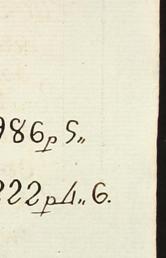 986 p 5 „
222 p 4 „ 6.